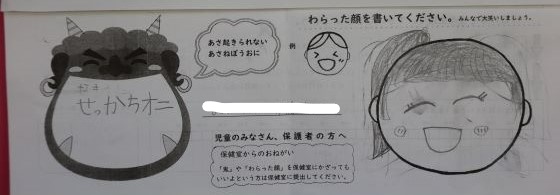 わらった顔を書いてください。 みんなで大笑いしましょう。
あさ起きられない
あさねぼうおに
例
せっかちオニ
児童のみなさん、保護者の方へ
保健室からのおねがい
「鬼」や“わらった顔”を保健室にかざっても
いいよという方は保健室に提出してください。